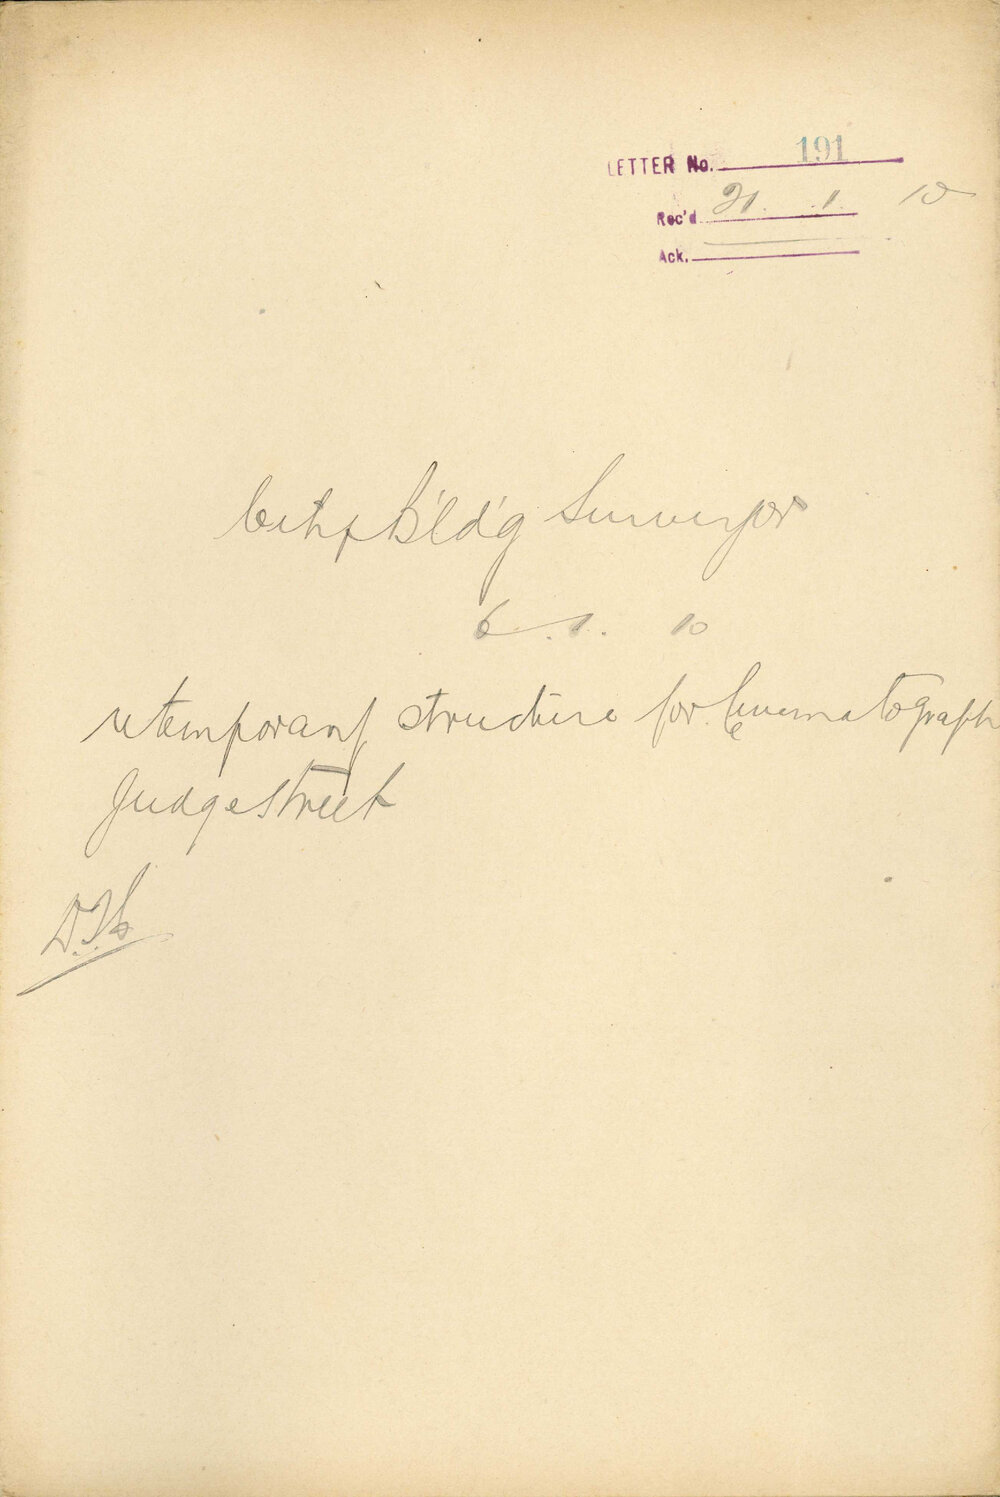 LETTER No. 191
Rec'd 21. 1. 10
Ack.
City B'ld'g Surveyor
6. 1. 10
re temporary structure for Cinematograph
Judge Street